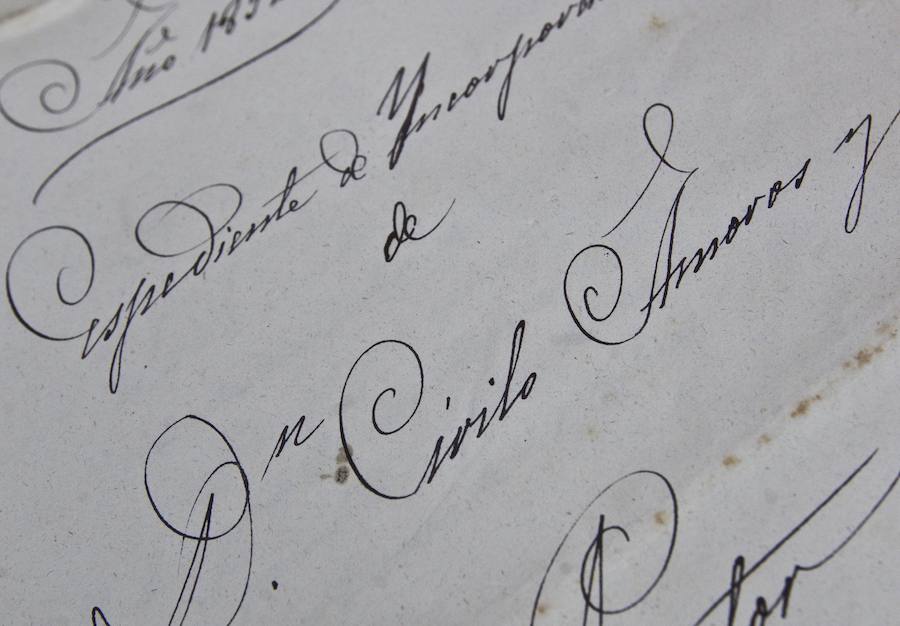 Año 185
Espediente de Yncorpora
de
Dn Cirilo Amoros y